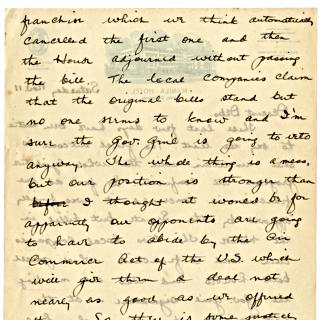 franchise which we think automatically
cancelled the first one and then
the House adjourned without passing
the bill. The local companies claim
that the original bills stand but
no one seems to know and I'm
sure the Gov. Gen'l is going to veto
anyway. The whole thing is a mess,
but our position is stronger than
before I thought it would be for
apparently our opponents are going
to have to abide by the Air
Commerce Act of the U.S. which
will give them a deal not
nearly as good as we offered
So there is some justice
MANILA HOTEL